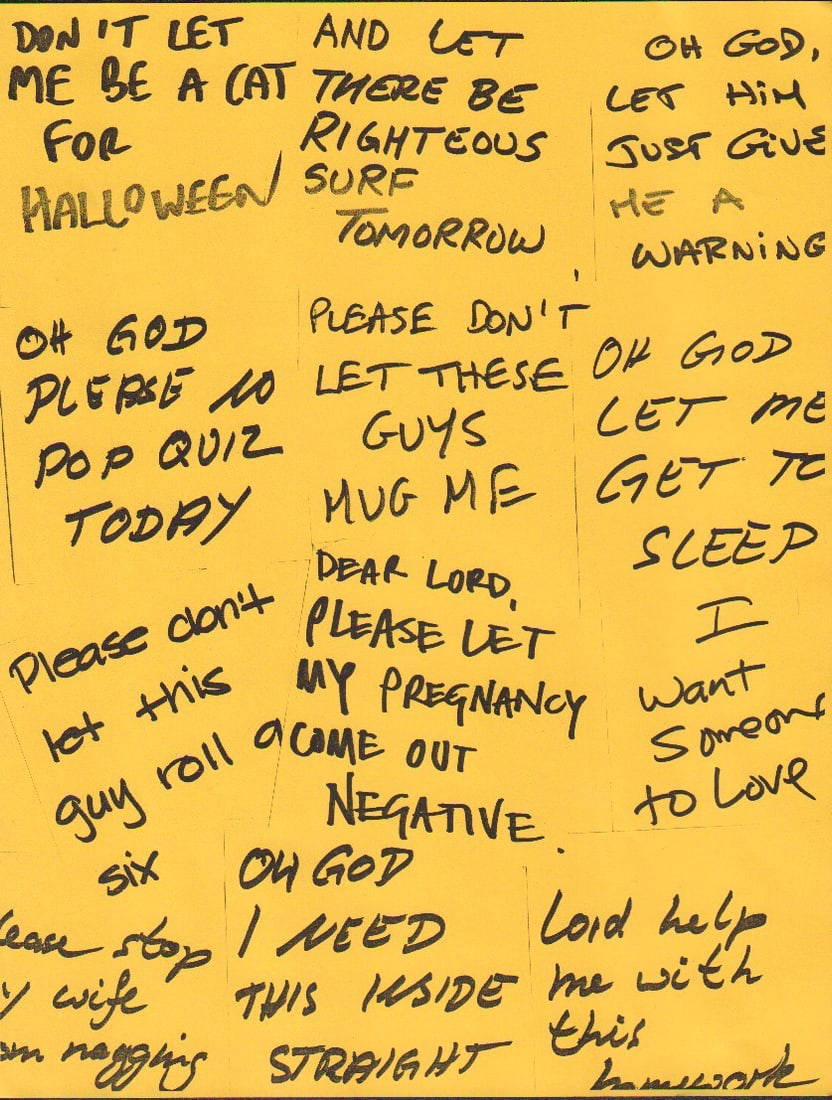 DON'T LET
ME BE A CAT
FOR
HALLOWEEN
AND LET
THERE BE
RIGHTEOUS
SURF
TOMORROW
OH GOD,
LET HIM
JUST GIVE
ME A
WARNING
OH GOD
PLEASE NO
POP QUIZ
TODAY
PLEASE DON'T
LET THESE
GUYS
MUG ME
OH GOD
LET ME
GET TO
SLEEP
Please don't
let this
guy roll a
six
DEAR LORD,
PLEASE LET
MY PREGNANCY
COME OUT
NEGATIVE.
I
want
someone
to Love
lease stop
y wife
om nagging
OH GOD
I NEED
THIS INSIDE
STRAIGHT
Lord help
me with
this
homework